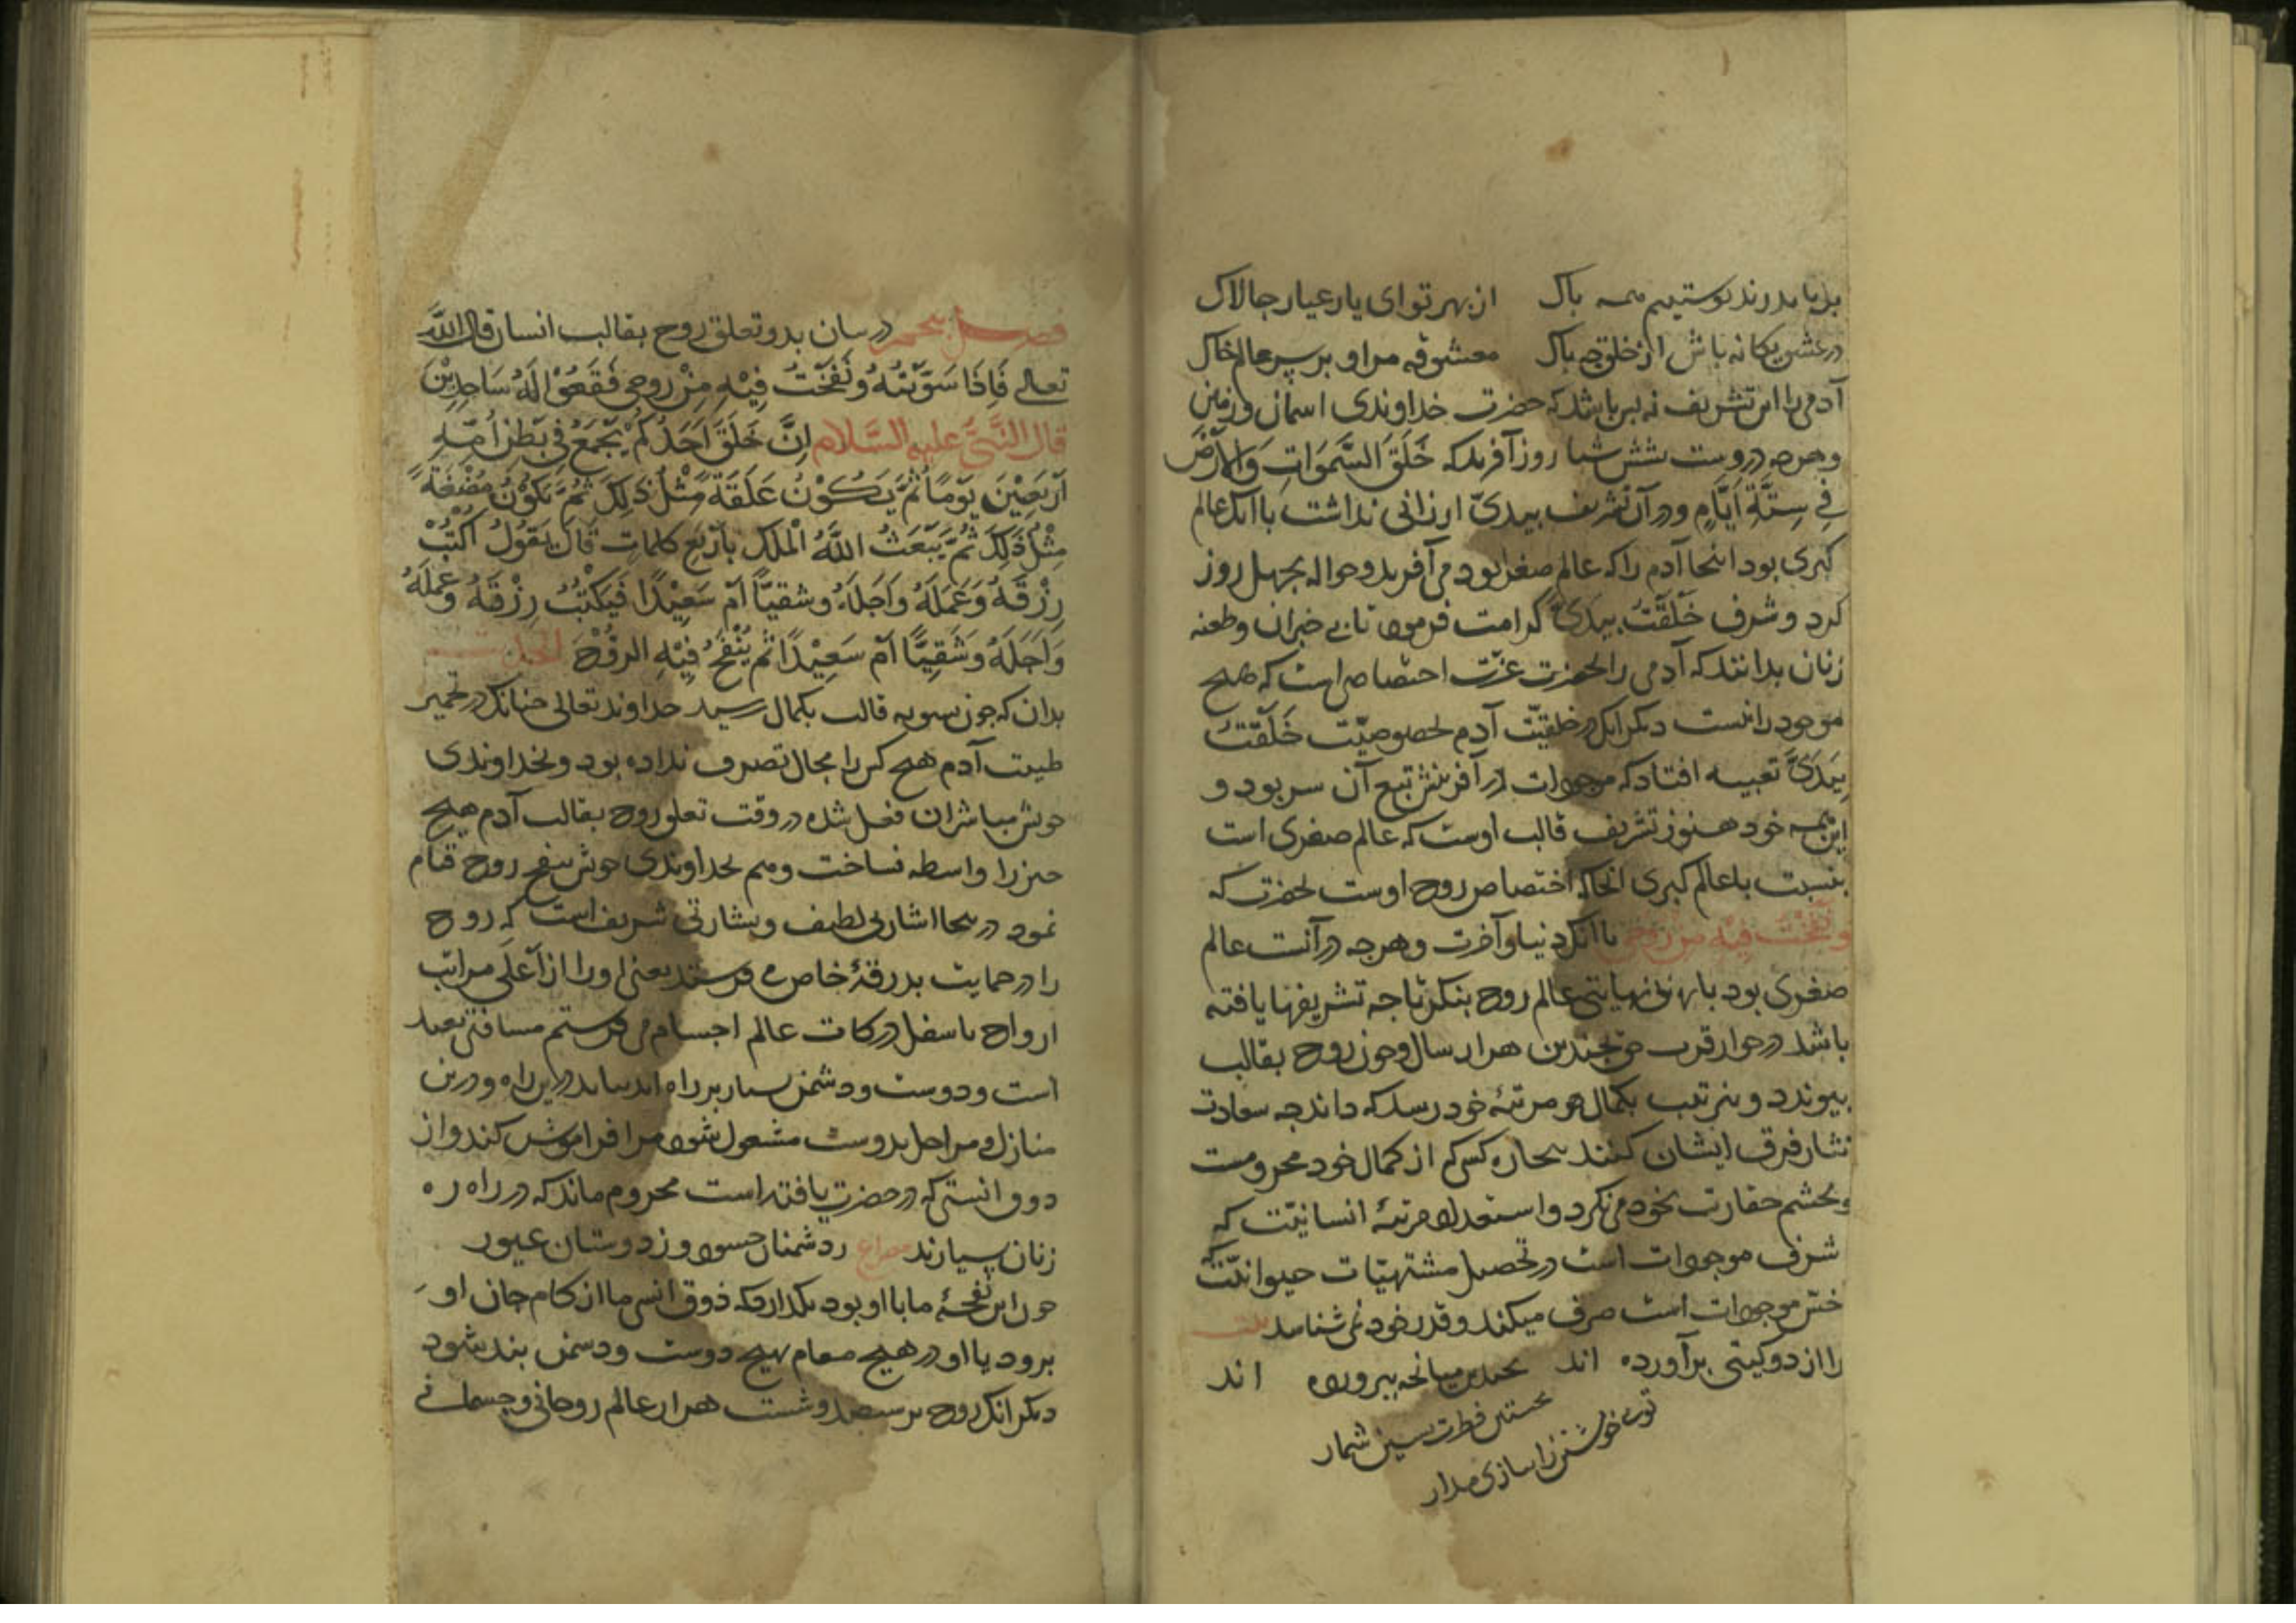 از بهر تو ای یار عیار جالاک
در عشق یکانه باش از خلق چه باک معشوقه مرا و بر سر عالم خاک
آدمی را این تشریف نه بس باشد که حضرت خداوندی اسمان و زمین
و هرجه دروست شش شبا روز آفرید که خَلَقَ السَّمَوَاتِ وَالْأَرْضَ
فِی سِتَّةِ اَیَّامٍ و در آن تشریف بیدیّ ارزانی نداشت با آنک عالم
کبری بود اینجا آدم را که عالم صغری بود می آفرید و حواله بجهل روز
کرد و شرف خَلَقْتُ بیدیّ کرامت فرمود تا بی خبران و طعنه
زنان بدانند که آدمی را بحضرت عزت اختصاصی است که هیچ
موجود را نیست دیکر آنک در خلقیّت آدم بخصوصیّت خَلَقْتُ
بِیَدَیَّ تعبیه افتاد که موجودات در آفرینش تبع آن سر بود و
این همه خود هنوز تشریف قالب اوست که عالم صغری است
بنسبت با عالم کبری انجا که اختصاص روح اوست بحضرت که
و نَفَخْتُ فِیْهِ مِن رُوحِی با آنک دنیا و آخرت و هرجه در آنست عالم
صغری بود با بی نهایتی عالم روح بنکر تا جه تشریفها یافته
باشد در جوار قرب حق جندین هزار سال و جون روح بقالب
بیوندد و بترتیب بکمال مرتبهٔ خود رسد که داند جه سعادت
نثار فرق ایشان کنند بیجاره کسی که از کمال خود محرومست
و بجشم حقارت بخود می نکرد و استعداد مرتبهٔ انسانیّت که
شرف موجودات است در تحصیل مشتهیّات حیوانیّت که
خسّ موجودات است صرف میکند و قدر خود نمی شناسد بیت
را از دو کیتی برآورده اند بجندین میانجی ببرورده اند
نخستین فطرت بسین شمار
توی خویشتن را ببازی مدار
فصل بنجم در بیان بدو تعلق روح بقالب انسان قال اللّٰه
تعالی فَاِذَا سَوَّیْتُهُ وَنَفَخْتُ فِیْهِ مِنْ رُوحِی فَقَعُوْا لَهُ سَاجِدِیْنَ
قال النَّبِیّ علیه السَّلام اِنَّ خَلَقَ اَحَدَکُمْ یَجْمَعُ فِی بَطْنِ اُمِّهِ
اَرْبَعِیْنَ یَوْمًا ثُمَّ یَکُوْنُ عَلَقَةً مِثْلَ ذٰلِکَ ثُمَّ یَکُوْنُ مُضْغَةً
مِثْلَ ذٰلِکَ ثُمَّ یَبْعَثُ اللّٰهُ الْمَلَکَ بِاَرْبَعِ کلماتٍ قال یَقُوْلُ اُکْتُبْ
رِزْقَهُ وَعَمَلَهُ وَاَجَلَهُ وشقیًّا اَمْ سَعِیْدًا فَیَکْتُبُ رِزْقَهُ وَعَمَلَهُ
وَاَجَلَهُ وَشَقِیًّا اَمْ سَعِیْدًا ثُمَّ یُنْفَخُ فِیْهِ الرُّوْحَ الحدیث
بدان که جون تسویه قالب بکمال رسید خداوند تعالی جنانک در تخمیر
طینت آدم هیج کس را مجال تصرف نداده بود و بخداوندی
خویش مباشر آن فعل شده در وقت تعلق روح بقالب آدم هیج
جیز را واسطه نساخت و هم بخداوندی خویش بنفخ روح قیام
نمود در ینجا اشارتی لطیف و بشارتی شریف است که روح
را در حمایت بدرقهٔ خاص می فرستد یعنی او را از اَعلَی مراتب
ارواح باسفل درکات عالم اجسام می فرستم مسافتی بعید
است و دوست و دشمن بسیار بر راه اند نباید در این راه و درین
منازل و مراحل بدوست مشغول شود مرا فراموش کند و از
ذوق انسی که در حضرت یافته است محروم ماند که در راه ره
زنان بسیارند مصراع ز دشمنان حسود و ز دوستان غیور
جون این نفخهٔ ما با او بود نکذارد که ذوق انس ما از کام جان او
برود یا او در هیج مقام بهیج دوست و دشمن بند شود
دیکر انک روح بر سیصد و شست هزار عالم روحانی و جسمانی